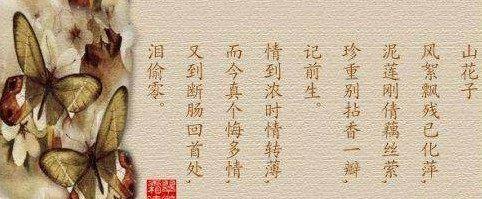 山花子
风絮飘残已化萍，
泥莲刚倩藕丝萦，
珍重别拈香一瓣，
记前生。
情到浓时情转薄，
而今真个悔多情，
又到断肠回首处，
泪偷零。